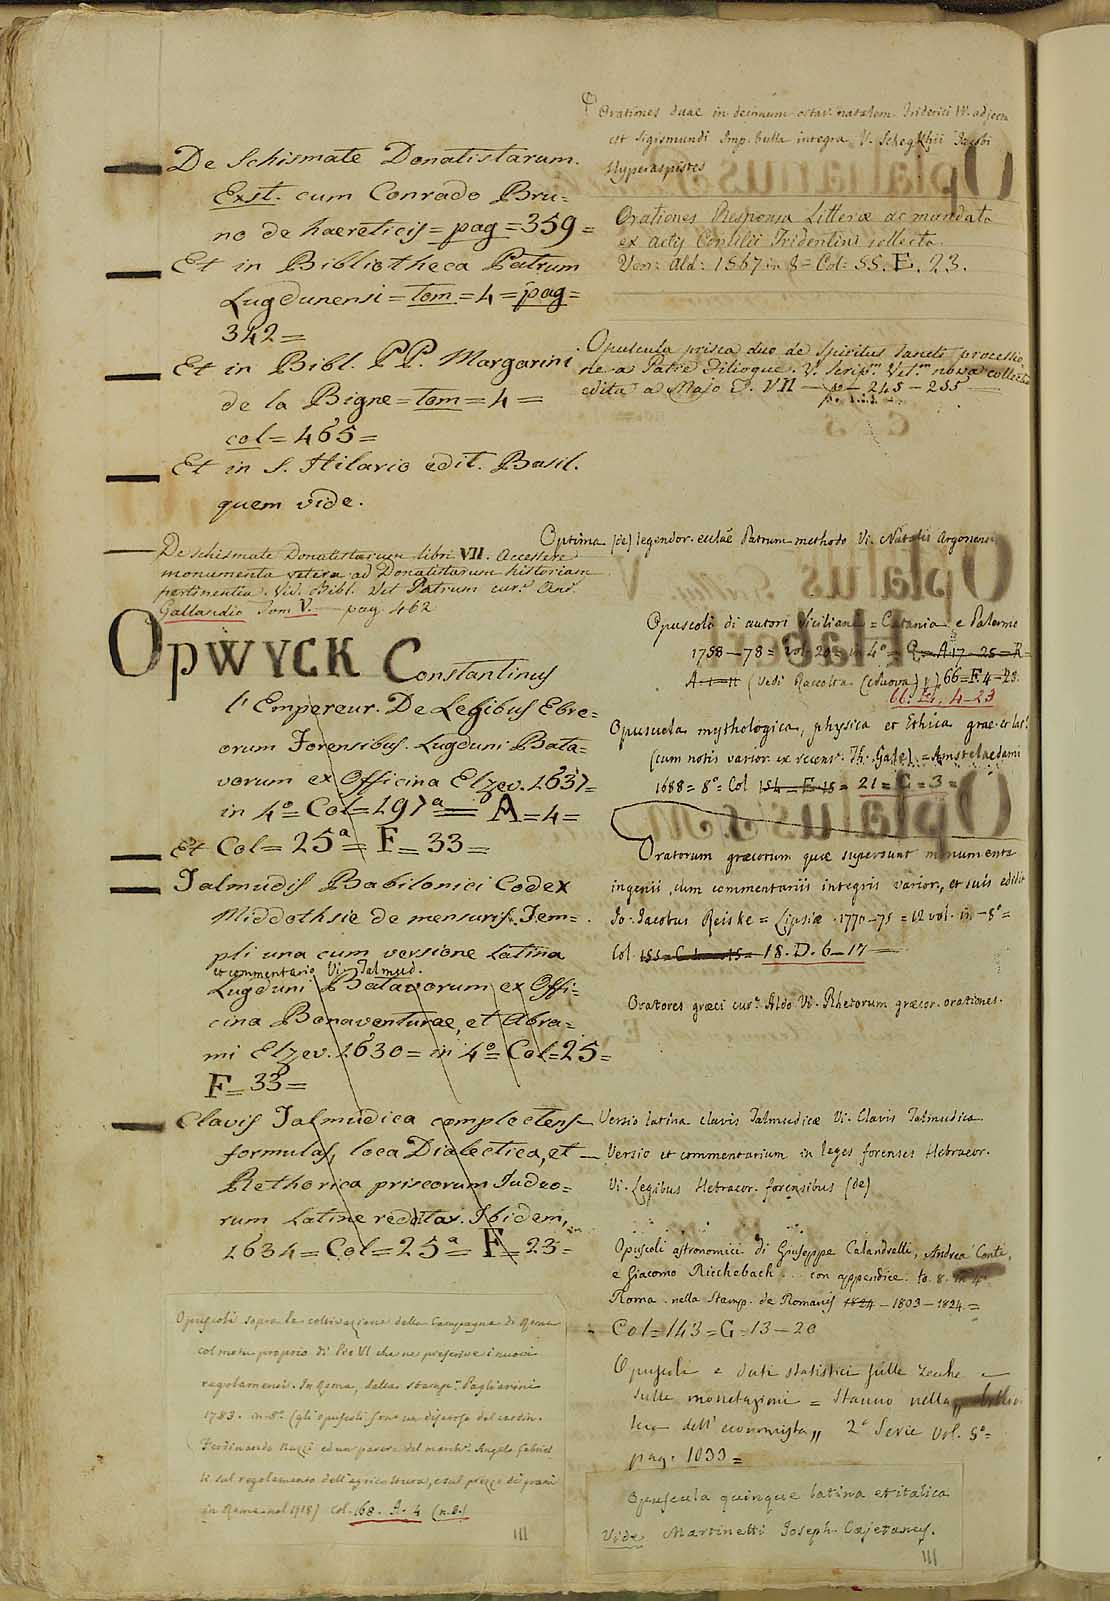 De Schismate Donatistarum.
Exst. cum Conrado Bru=
no de haereticis = pag = 359 =
Et in Bibliotheca Patrum
Lugdunensi = tom = 4 = pag =
342 =
Et in Bibl. PP. Margarini
de la Bigne = tom = 4 =
col = 465 =
Et in S. Hilario edit. Basil.
quem vide.
De schismate Donatistarum libri VII. Accessere
monumenta vetera ad Donatistarum historiam
pertinentia. Vid. Bibl. Vet Patrum cur.e And.
Gallandio Tom V. — pag 462
OPWYCK Constantinus
l'Empereur. De Legibus Ebre=
orum Forensibus. Lugduni Bata=
vorum ex Officina Elzev. 1637=
in 4º= Col= 197ª = A=4=
Et Col= 25ª= F= 33=
Talmudis Babilonici Codex
Middothsie de mensuris Tem=
pli una cum versione latina
et commentario Vi. Talmud.
Lugduni Batavorum ex Offi=
cina Bonaventurae, et Abra=
mi Elzev. 1630= in 4º= Col=25=
F=33=
Clavis Talmudica complectens
formulas, loca Dialectica, et
Rethorica priscorum Judeo=
rum Latine redditas. Ibidem,
1634= Col= 25ª= F= 23=
Opuscoli sopra la coltivazione della Campagna di Roma
col motu proprio di Pio VI che ne prescrive i nuovi
regolamenti. In Roma, dalla stamp.ª Pagliarini
1783. in 8º (gli opuscoli sono un discorso del cardin.
Ferdinando Nuzzi ed un parere del march.e Angelo Gabriel
li sul regolamento dell'agricoltura, e sul prezzo di grani
in Roma nel 1718) col. 168. A. 4 (n.2.)
Orationes duae in decimum octav. natalem Friderici W. adjecta
est Sigismundi Imp. bulla integra V. Schegkhii Jacobi
Hyperaspistes
Orationes Responsa Litteræ ac mandata
ex actis Concilii Tridentini collecta
Ven: Ald: 1567 in 8= Col= 55. E. 23.
Opuscula prisca duo de Spiritus Sancti processio
ne a Patre Filioque. V. Scrip.m Vet.m nova collectio
edita a Majo T. VII — p— 245 - 255 —
Optima (de) legendor. eccliæ Patrum methodo Vi. Natalis Argonensis
Opuscoli di autori Siciliani = Catania e Palermo
1758—78= vol. 20= in 4º
(Vedi Raccolta (nuova) 66=F 4-23.
66. F. 4-23
Opuscula mythologica, physica et Ethica grae. et lat.
(cum notis varior. ex recens.e Th. Gale). = Amstelaedami
1688= 8º= Col 154=E 18= 21=C=3=
Oratorum græcorum quæ supersunt monumenta
ingenii, cum commentariis integris varior., et suis edidit
Jo. Jacobus Reiske = Lipsiæ. 1770-75 = 12 vol. in-8º=
Col. 18. D. 6—17 —
Oratores græci cur.e Aldo Vi. Rhetorum græcor. orationes.
Versio latina clavis Talmudicæ Vi. Clavis Talmudica
Versio et commentarium in leges forenses Hebraeor.
Vi. Legibus Hebraeor. forensibus (de)
Opuscoli astronomici di Giuseppe Calandrelli, Andrea Conti,
e Giacomo Ricchebach . . con appendice to. 8. in 4º
Roma. nella Stamp. de Romanis 1824 – 1803 – 1824 =
Col= 143 = G = 13 – 20
Opuscoli e dati statistici sulle zecche e
sulle monetazioni = Stanno nella „bibliot
teca dell'economista„ 2ª Serie Vol. 5º=
pag. 1033 =
Opuscula quinque latina et italica
Vide Martinetti Joseph. Cajetanus.